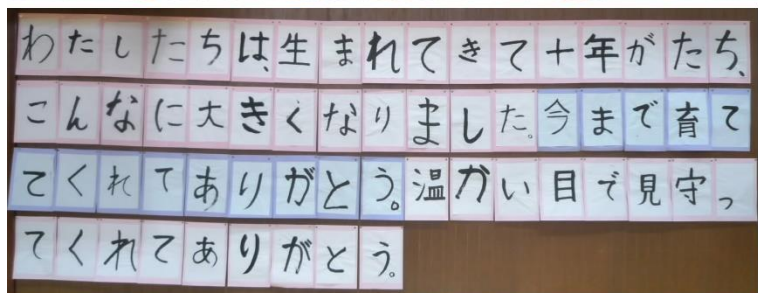 わたしたちは、生まれてきて十年がたち、
こんなに大きくなりました。今まで育て
てくれてありがとう。温かい目で見守っ
てくれてありがとう。